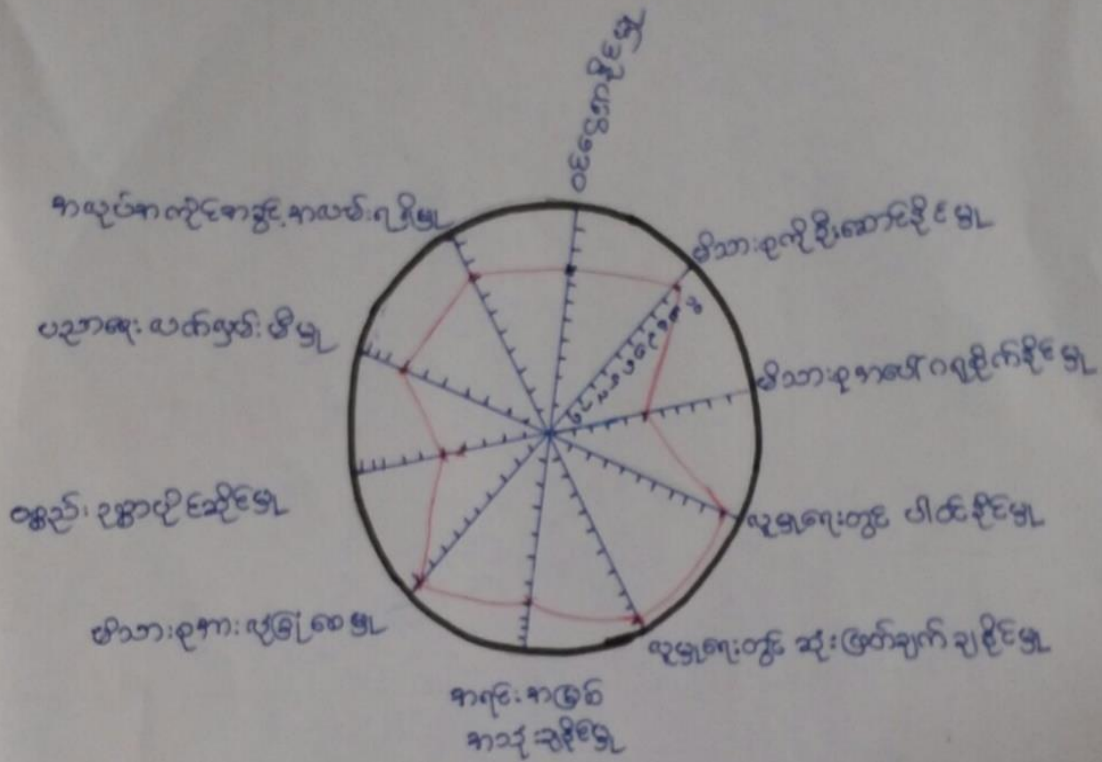 ဝင်ငွေရှာနိုင်မှု
မိသားစုကိုဦးဆောင်နိုင်မှု
မိသားစုအပေါ်ဂရုစိုက်နိုင်မှု
လူမှုရေးတွင် ပါဝင်နိုင်မှု
လူမှုရေးတွင် ဆုံးဖြတ်ချက် ချနိုင်မှု
အရင်းအမြစ်
အသုံးချနိုင်မှု
မိသားစုအားလုံခြုံစေမှု
ပစ္စည်းဥစ္စာပိုင်ဆိုင်မှု
ပညာရေး လက်လှမ်းမီမှု
အလုပ်အကိုင်အခွင့်အလမ်းရရှိမှု